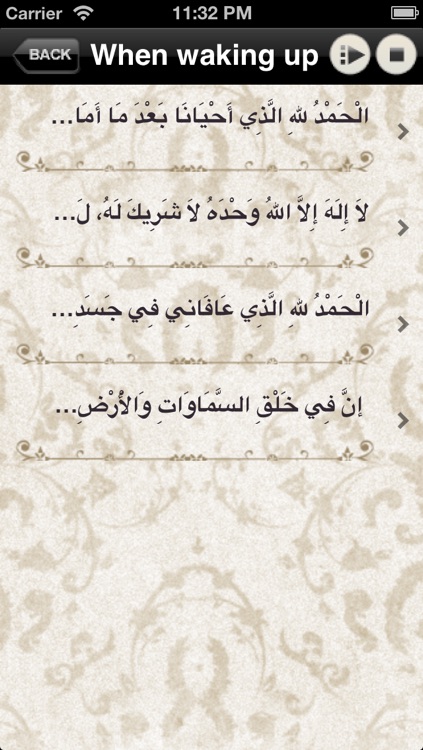 Carrier 11:32 PM
BACK When waking up
الْحَمْدُ للهِ الَّذِي أَحْيَانَا بَعْدَ مَا أَمَا...
لاَ إِلَهَ إِلاَّ اللهُ وَحْدَهُ لاَ شَرِيكَ لَهُ، لَ...
الْحَمْدُ للهِ الَّذِي عَافَانِي فِي جَسَدِ...
إِنَّ فِي خَلْقِ السَّمَاوَاتِ وَالأَرْضِ...